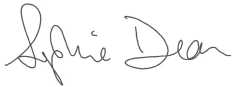 Sophie Dean